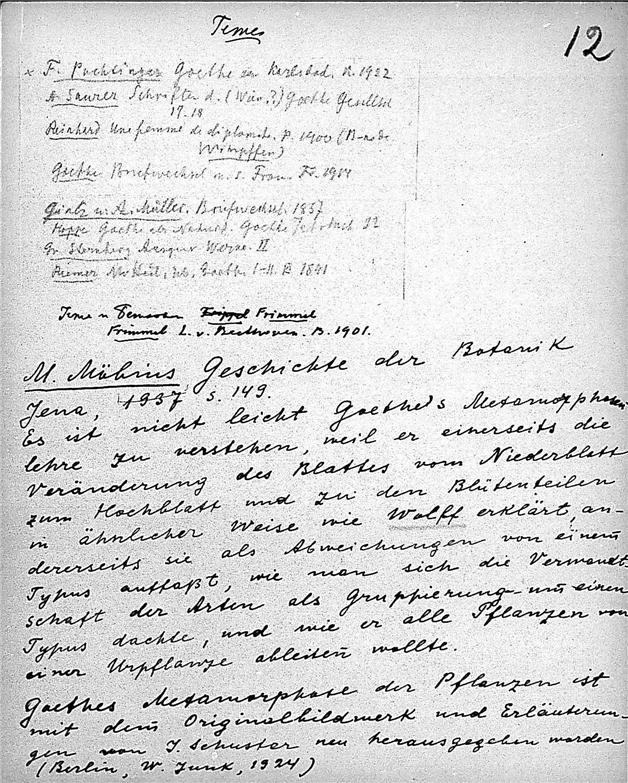 12
F. Goethe in Karlsbad. 1922
A. Sauer Schriften d. (Wien.?) Goethe Gesellsch
17.18
Reinhard Une femme de diplomate. P. 1900
Wimpffen)
Goethe Briefwechsel m. s. Frau. Fr. 1914
u. A. Müller. Briefwechsel. 1857
Goethe als Naturf. Goethe Jahrbuch
Gr. Sternberg II
Riemer Goethe I-II. B 1841
Frimmel
Frimmel L. v. Beethoven. B. 1901.
M. Möbius Geschichte der Botanik
Jena, 1937 S. 149.
Es ist nicht leicht Goethe's Metamorphosen
lehre zu verstehen, weil er einerseits die
Veränderung des Blattes vom Niederblatt
zum Hochblatt und zu den Blütenteilen
in ähnlicher Weise wie Wolff erklärt, an-
dererseits sie als Abweichungen von einem
Typus auffaßt, wie man sich die Verwandt
schaft der Arten als Gruppierung um einen
Typus dachte, und wie er alle Pflanzen von
einer Urpflanze ableiten wollte.
Goethes Metamorphose der Pflanzen ist
mit dem Originalbildwerk und Erläuterun-
gen von J. Schuster neu herausgegeben worden
(Berlin, W. Junk, 1924)